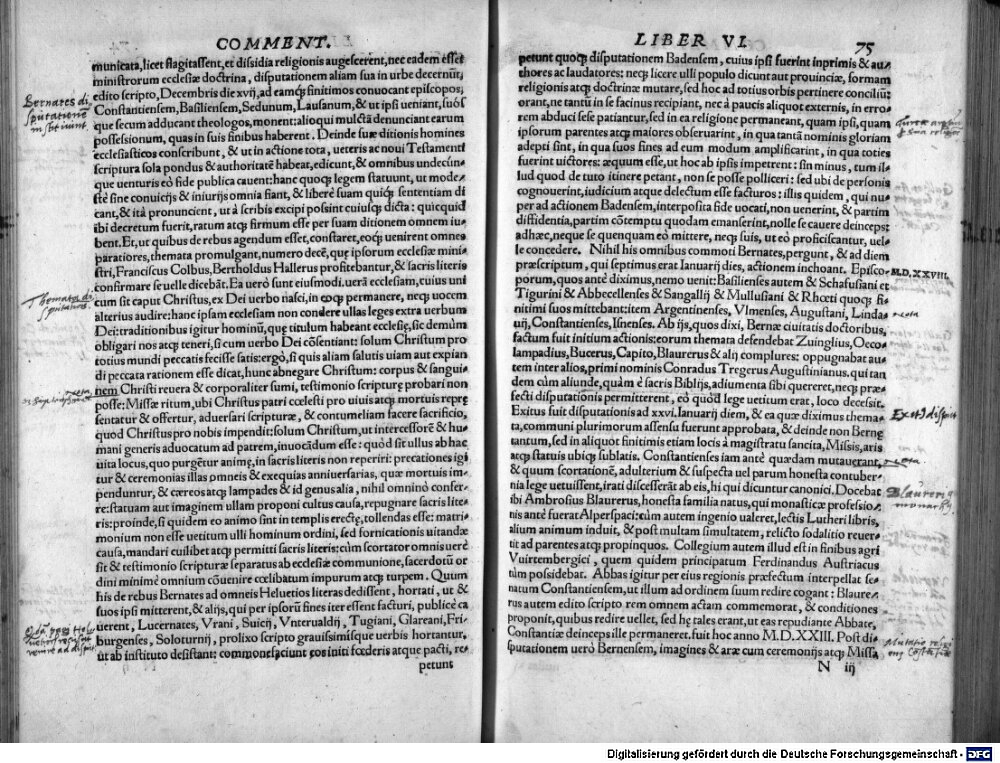 COMMENT.
municata, licet flagitassent, et dissidia religionis augescerent, nec eadem esset
ministrorum ecclesiæ doctrina, disputationem aliam sua in urbe decernũt;
edito scripto, Decembris die xvij, ad eamq́; finitimos conuocant episcopos,
Constantiensem, Basiliensem, Sedunum, Lausanum, & ut ipsi ueniant, suós
que secum adducant theologos, monent: alioqui mulctã denunciant earum
possessionum, quas in suis finibus haberent. Deinde suæ ditionis homines
ecclesiasticos conscribunt, & ut in actione tota, ueteris ac noui Testamenti
scriptura sola pondus & authoritatẽ habeat, edicunt, & omnibus undecũn-
que uenturis eò fide publica cauent: hanc quoq; legem statuunt, ut mode-
stè sine conuicijs & iniurijs omnia fiant, & liberè suam quisq; sententiam di
cant, & ità pronuncient, ut à scribis excipi possint cuiusq; dicta: quicquid
ibi decretum fuerit, ratum atq; firmum esse per suam ditionem omnem iu-
bent. Et, ut quibus de rebus agendum esset, constaret, eoq́; uenirent omnes
paratiores, themata promulgant, numero decẽ, quę ipsorum ecclesiæ mini-
stri, Franciscus Colbus, Bertholdus Hallerus profitebantur, & sacris literis
confirmare se uelle dicebãt. Ea uerò sunt eiusmodi. uerã ecclesiam, cuius uni
cum sit caput Christus, ex Dei uerbo nasci, in eoq; permanere, neq; uocem
alterius audire: hanc ipsam ecclesiam non condere ullas leges extra uerbum
Dei: traditionibus igitur hominũ, quę titulum habeant ecclesię, sic demùm
obligari nos atq; teneri, si cum uerbo Dei cõsentiant: solum Christum pro
totius mundi peccatis fecisse satis: ergò, si quis aliam salutis uiam aut expian
di peccata rationem esse dicat, hunc abnegare Christum: corpus & sangui-
nem Christi reuera & corporaliter sumi, testimonio scripturę probari non
posse: Missæ ritum, ubi Christus patri cœlesti pro uiuis atq; mortuis reprę
sentatur & offertur, aduersari scripturæ, & contumeliam facere sacrificio,
quod Christus pro nobis impendit: solum Christum, ut intercessorẽ & hu-
mani generis aduocatum ad patrem, inuocãdum esse: quòd sit ullus ab hac
uita locus, quo purgẽtur animę, in sacris literis non reperiri: precationes igi
tur & ceremonias illas omneis & exequias anniuersarias, quæ mortuis im-
penduntur, & cæreos atq; lampades & id genus alia, nihil omninò confer-
re: statuam aut imaginem ullam proponi cultus causa, repugnare sacris lite-
ris: proinde, si quidem eo animo sint in templis erectę, tollendas esse: matri-
monium non esse uetitum ulli hominum ordini, sed fornicationis uitandæ
causa, mandari cuilibet atq; permitti sacris literis: cùm scortator omnis uerè
sit & testimonio scripturæ separatus ab ecclesiæ communione, sacerdotũ or
dini minimè omnium cõuenire cœlibatum impurum atq; turpem. Quum
his de rebus Bernates ad omneis Heluetios literas dedissent, hortati, ut &
suos ipsi mitterent, & alijs, qui per ipsorũ fines iter essent facturi, publicè ca
uerent, Lucernates, Vrani, Suicij, Vnterualdij, Tugiani, Glareani, Fri-
burgenses, Soloturnij, prolixo scripto grauissimisq́ue uerbis hortantur,
ut ab instituto desistant: commonefaciunt eos initi fœderis atque pacti, re-
petunt
Bernates di-
sputationẽ
instituunt.
Themata di
sputationis
nota
LIBER VI. 75
petunt quoq; disputationem Badensem, cuius ipsi fuerint inprimis & au-
thores ac laudatores: neq; licere ulli populo dicunt aut prouinciæ, formam
religionis atq; doctrinæ mutare, sed hoc ad totius orbis pertinere conciliũ:
orant, ne tantũ in se facinus recipiant, nec à paucis aliquot externis, in erro-
rem abduci sese patiantur, sed in ea religione permaneant, quam ipsi, quam
ipsorum parentes atq; maiores obseruarint, in qua tantã nominis gloriam
adepti sint, in qua suos fines ad eum modum amplificarint, in qua toties
fuerint uictores: æquum esse, ut hoc ab ipsis impetrent: sin minus, tum il-
lud quod de tuto itinere petant, non se posse polliceri: sed ubi de personis
cognouerint, iudicium atque delectum esse facturos: illis quidem, qui nu-
per ad actionem Badensem, interposita fide uocati, non uenerint, & partim
diffidentia, partim cõtemptu quodam emanserint, nolle se cauere deinceps:
adhæc, neque se quenquam eò mittere, neq; suis, ut eò proficiscantur, uel-
le concedere. Nihil his omnibus commoti Bernates, pergunt, & ad diem
præscriptum, qui septimus erat Ianuarij dies, actionem inchoant. Episco-
porum, quos antè diximus, nemo uenit: Basilienses autem & Schafusiani et
Tigurini & Abbecellenses & Sangallij & Mullusiani & Rhœti quoq; fi-
nitimi suos mittebant: item Argentinenses, Vlmenses, Augustani, Linda-
uij, Constantienses, Isnenses. Ab ijs, quos dixi, Bernæ ciuitatis doctoribus,
factum fuit initium actionis: eorum themata defendebat Zuinglius, Oeco-
lampadius, Bucerus, Capito, Blaurerus & alij complures: oppugnabat au-
tem inter alios, primi nominis Conradus Tregerus Augustinianus. qui tan
dem cùm aliunde, quàm è sacris Biblijs, adiumenta sibi quereret, neq; præ-
fecti disputationis permitterent, eò quòd lege uetitum erat, loco decessit.
Exitus fuit disputationis ad xxvi. Ianuarij diem, & ea quæ diximus thema-
ta, communi plurimorum assensu fuerunt approbata, & deinde non Bernę
tantum, sed in aliquot finitimis etiam locis à magistratu sancita, Missis, aris
atq; statuis ubiq; sublatis. Constantienses iam antè quædam mutauerant,
& quum scortationẽ, adulterium & suspecta uel parum honesta contuber-
nia lege uetuissent, irati discesserãt ab eis, hi qui dicuntur canonici. Docebat
ibi Ambrosius Blaurerus, honesta familia natus, qui monasticæ professio-
nis antè fuerat Alperspaci: cùm autem ingenio ualeret, lectis Lutheri libris,
alium animum induit, & post multam simultatem, relicto sodalitio reuer-
tit ad parentes atq; propinquos. Collegium autem illud est in finibus agri
Vuirtembergici, quem quidem principatum Ferdinandus Austriacus
tùm possidebat. Abbas igitur per eius regionis præfectum interpellat se-
natum Constantiensem, ut illum ad ordinem suum redire cogant: Blaure-
rus autem edito scripto rem omnem actam commemorat, & conditiones
proponit, quibus redire uellet, sed hę tales erant, ut eas repudiante Abbate,
Constantiæ deinceps ille permaneret. fuit hoc anno M.D.XXIII. Post di-
sputationem uerò Bernensem, imagines & aræ cum ceremonijs atq; Missa
N iij
M.D.XXVIII.
nota
nota
Digitalisierung gefördert durch die Deutsche Forschungsgemeinschaft - DFG